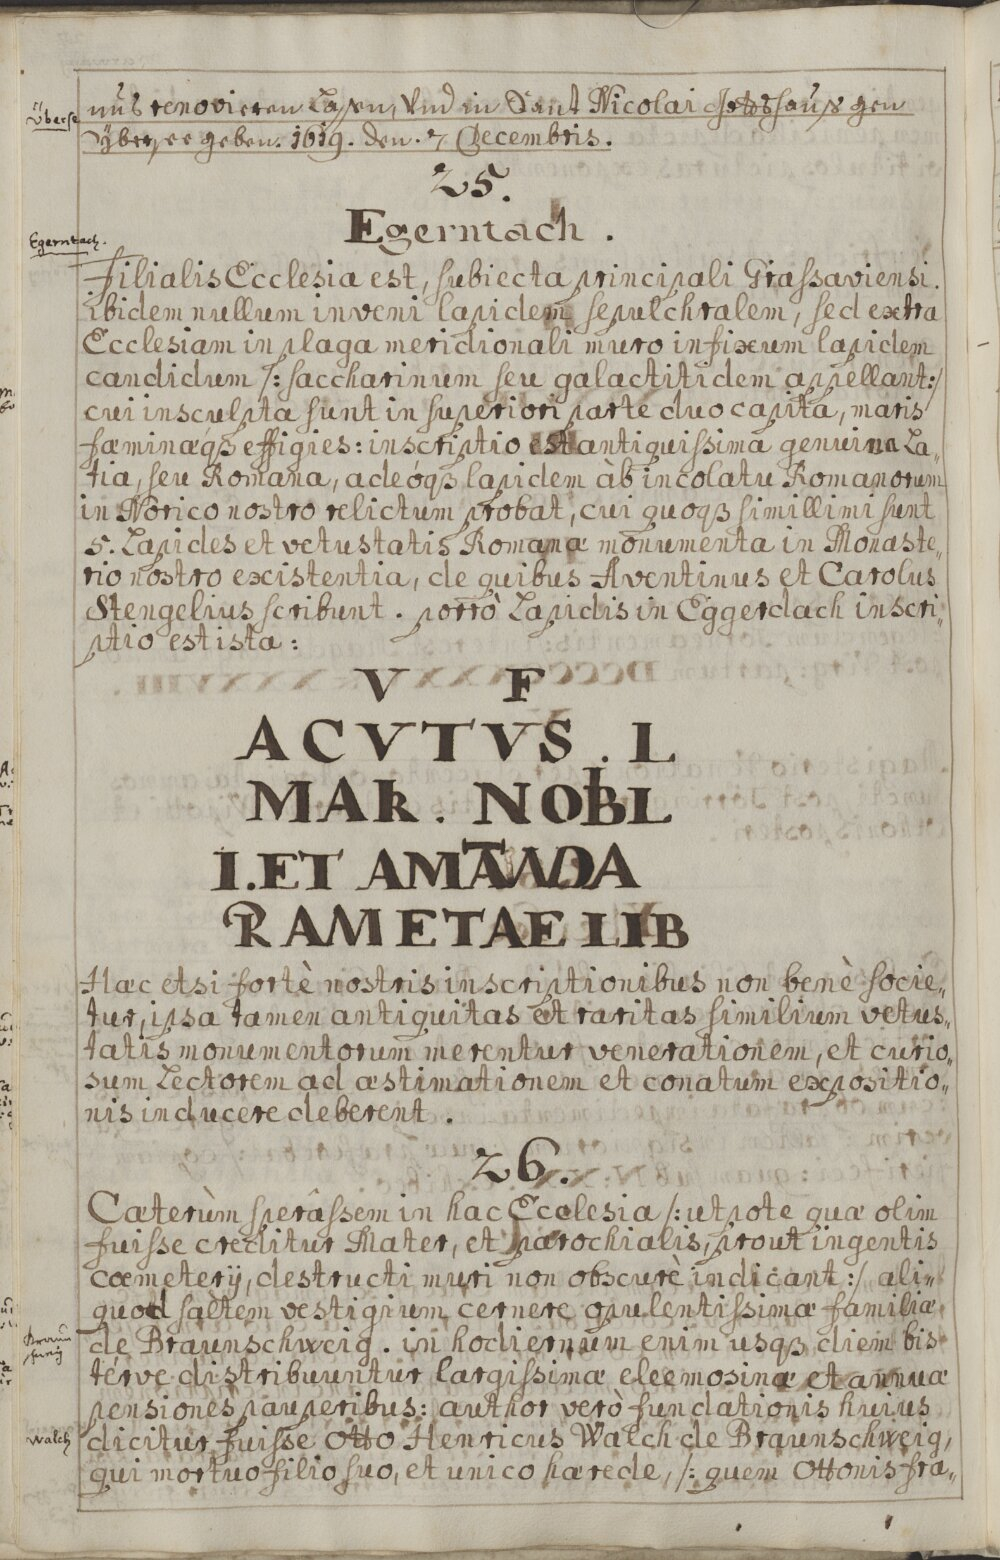 nuß renovieren Lassen, Und in Sant Nicolai Gottshauß gen
Überse
Ÿbersee geben. 1619. den. 7 Decembris.
25.
Egerntach.
Egerntach.
Filialis Ecclesia est, subiecta principali Grassaviensi.
ibidem nullum inveni lapidem sepulchralem, sed extra
Ecclesiam in plaga meridionali muro infixum lapidem
candidum /: saccharinum seu galactitidem appellant:/
cui insculpta sunt in superiori parte duo capita, maris
fæminæqꝫ effigies: inscriptio est antiquissima genuina La„
tia, seu Romana, adeóqꝫ lapidem àb incolatu Romanorum
in Norico nostro relictum probat, cui quoqꝫ simillimi sunt
5. Lapides et vetustatis Romanæ monumenta in Monaste„
rio nostro existentia, de quibus Aventinus et Carolus
Stengelius scribunt. porrò Lapidis in Eggerdach inscri„
ptio est ista:
V F
ACVTVS. L
MAR. NOBL
I. ET AMANDA
RAMETAE LIB
Hæc etsi fortè nostris inscriptionibus non benè socie„
tur, ipsa tamen antiquitas et raritas similium vetus„
tatis monumentorum merentur venerationem, et curio„
sum Lectorem ad æstimationem et conatum expositio„
nis inducere deberent.
26.
Cæterùm sperâssem in hac Ecclesia /: utpote quæ olim
fuisse creditur Mater, et parochialis, prout ingentis
cœmeterÿ, destructi muri non obscurè indicant:/ ali„
quod saltem vestigium cernere opulentissimæ familiæ
de Braunschweig. in hodiernum enim usqꝫ diem bis
térve distribuuntur largissimæ eleemosinæ et annuæ
pensiones pauperibus: author verò fundationis huius
Walch
dicitur fuisse Otto Henricus Walch de Braunschweig,
qui mortuo filio suo, et unico hærede, /: quem Ottonis fra„